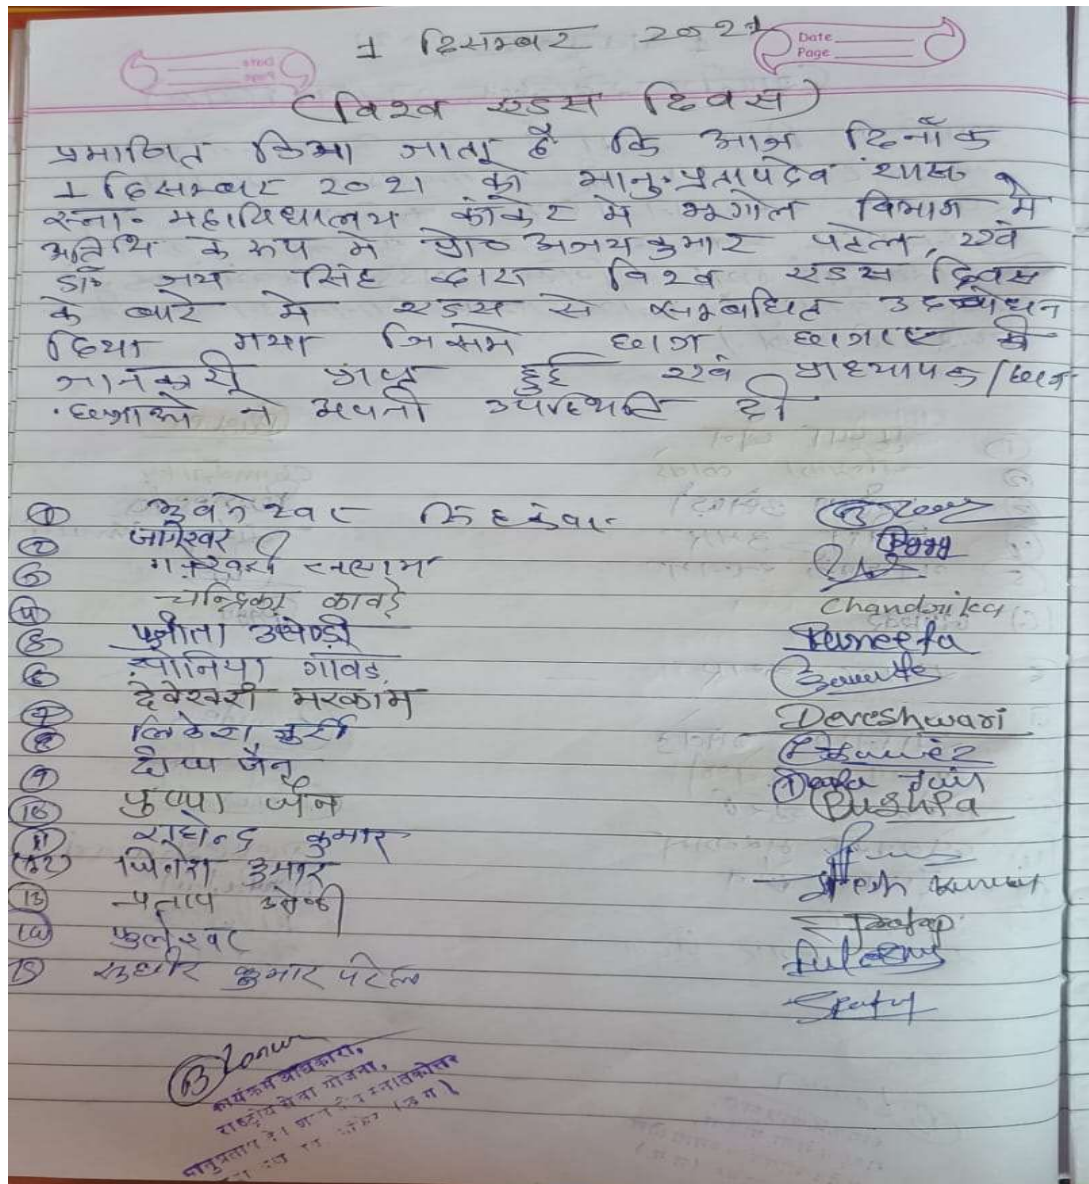 1 दिसम्बर 2021
Date
Page
(विश्व एडस दिवस)
प्रमाणित किया जाता है कि आज दिनाँक
1 दिसम्बर 2021 को भानुप्रतापदेव शास.
स्ना. महाविधालय कांकेर में भूगोल विभाग में
अतिथि के रूप में प्रो० अजय कुमार पटेल, एवं
डॉ० जय सिंह द्वारा विश्व एडस दिवस
के बारे में एडस से सम्बधित उदबोधन
दिया गया जिसमे छात्र छात्राएं को
जानकारी प्राप्त हुई एवं प्राध्यापक/छात्र
छात्राओ ने अपनी उपस्थिति दी
1
2 जागेश्वर
3
4 चन्द्रिका कावड़े Chandrika
5 पुनीता उसेण्डी Puneeta
6 सोनिया गावड़े
7 देवेश्वरी मरकाम Deveshwari
8 लिकेश कुर्रे
9 दीपा जैन Deepa Jain
10 पुष्पा जैन Pushpa
11 राघेन्द्र कुमार
12 जितेश कुमार Jitesh Kumar
13 प्रताप उसेण्डी Pratap
14 फुलेश्वर
15 सुधीर कुमार पटेल
कार्यक्रम अधिकारी,
राष्ट्रीय सेवा योजना,
भानुप्रताप देव स्नातकोत्तर